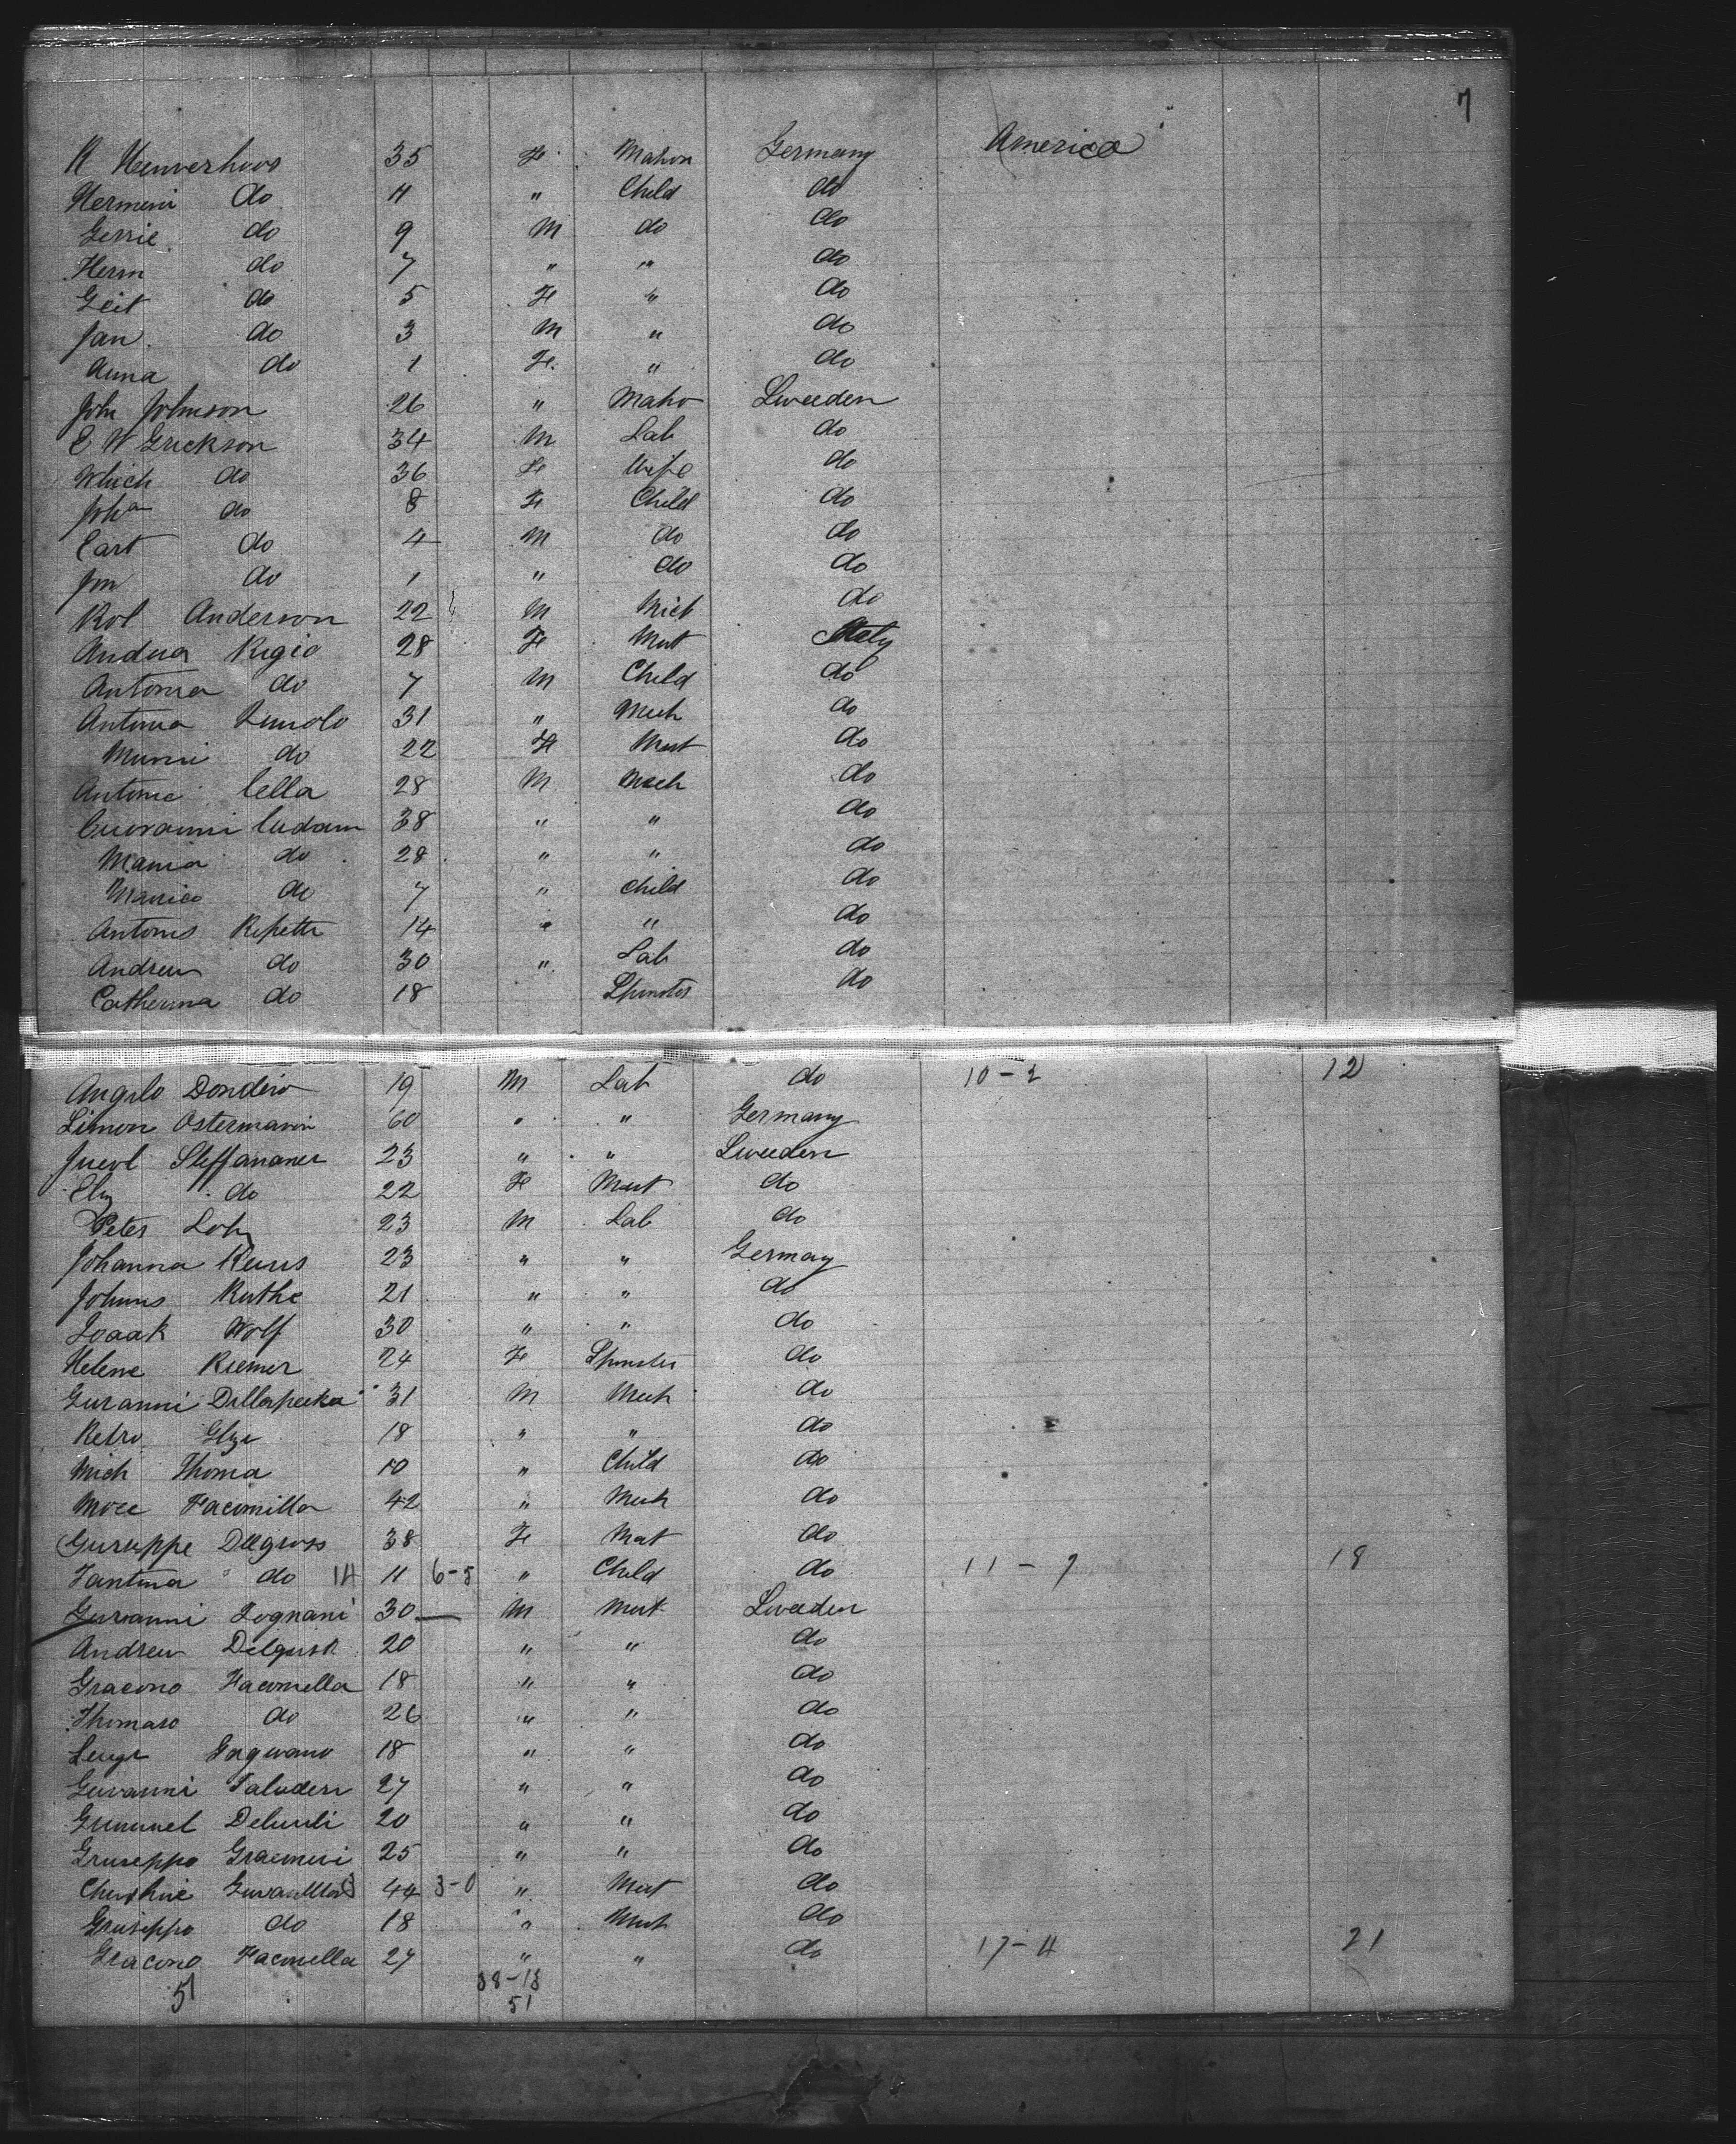 7
R Henverhoos 35 Fe Matron Germany America
Hermini do 11 " Child do
Gerrie do 9 M do do
Herm do 7 " " do
Geit do 5 Fe " do
Jan do 3 M " do
Anna do 1 Fe. " do
John Johnson 26 " Matro Sweeden
E W Erickson 34 M Lab do
Which do 36 Fe Wife do
Joha do 8 Fe Child do
Cart do 4 M do do
Jon do 1 " do do
Rol Anderson 22 M Mich do
Andua Rigio 28 Fe Mat Italy
Antonia do 7 M Child do
Antonia Zunolo 31 " Mech do
Munni do 22 Fe Mat do
Antonie Cella 28 M Mech do
Cuivanni Cudam 38 " " do
Mania do 28 " " do
Manico do 7 " Child do
Antonis Repetti 14 " " do
Andrew do 30 " Lab do
Catherina do 18 Spinster do
Angilo Dondiro 19 M Lab do 10-2 12
Simon Ostermann 60 " " Germany
Juevl Steffananer 23 " " Sweeden
Eliz do 22 Fe Mat do
Peter Loh 23 M Lab do
Johanna Reuis 23 " " Germay
Johnns Ruthe 21 " " do
Isaak Wolf 30 " " do
Helene Riemer 24 Fe Spinster do
Guranni Dellapecka 31 M Mech do
Retro Glze 18 " " do
Mich Thoma 10 " Child do
Moce Facomilla 42 " Mech do
Guruppe Delgross 38 Fe Mat do
Fantina do 14 11 6-5 " Child do 11-7 18
Guranni Zognani 30 M Mat Sweeden
Andrew Delgrusk 20 " " do
Gracono Facomella 18 " " do
Thomaso do 26 " " do
Luigi Gagwano 18 " " do
Guvanni Taladeri 27 " " do
Gummel Deluuli 20 " " do
Gruseppo Gracmuri 25 " " do
Chushie Guvanlla 3 44 3-0 " Mat do
Gruseppo do 18 " Mech do
Gracono Facomella 27 " " do 17-4 21
51 38-13
51